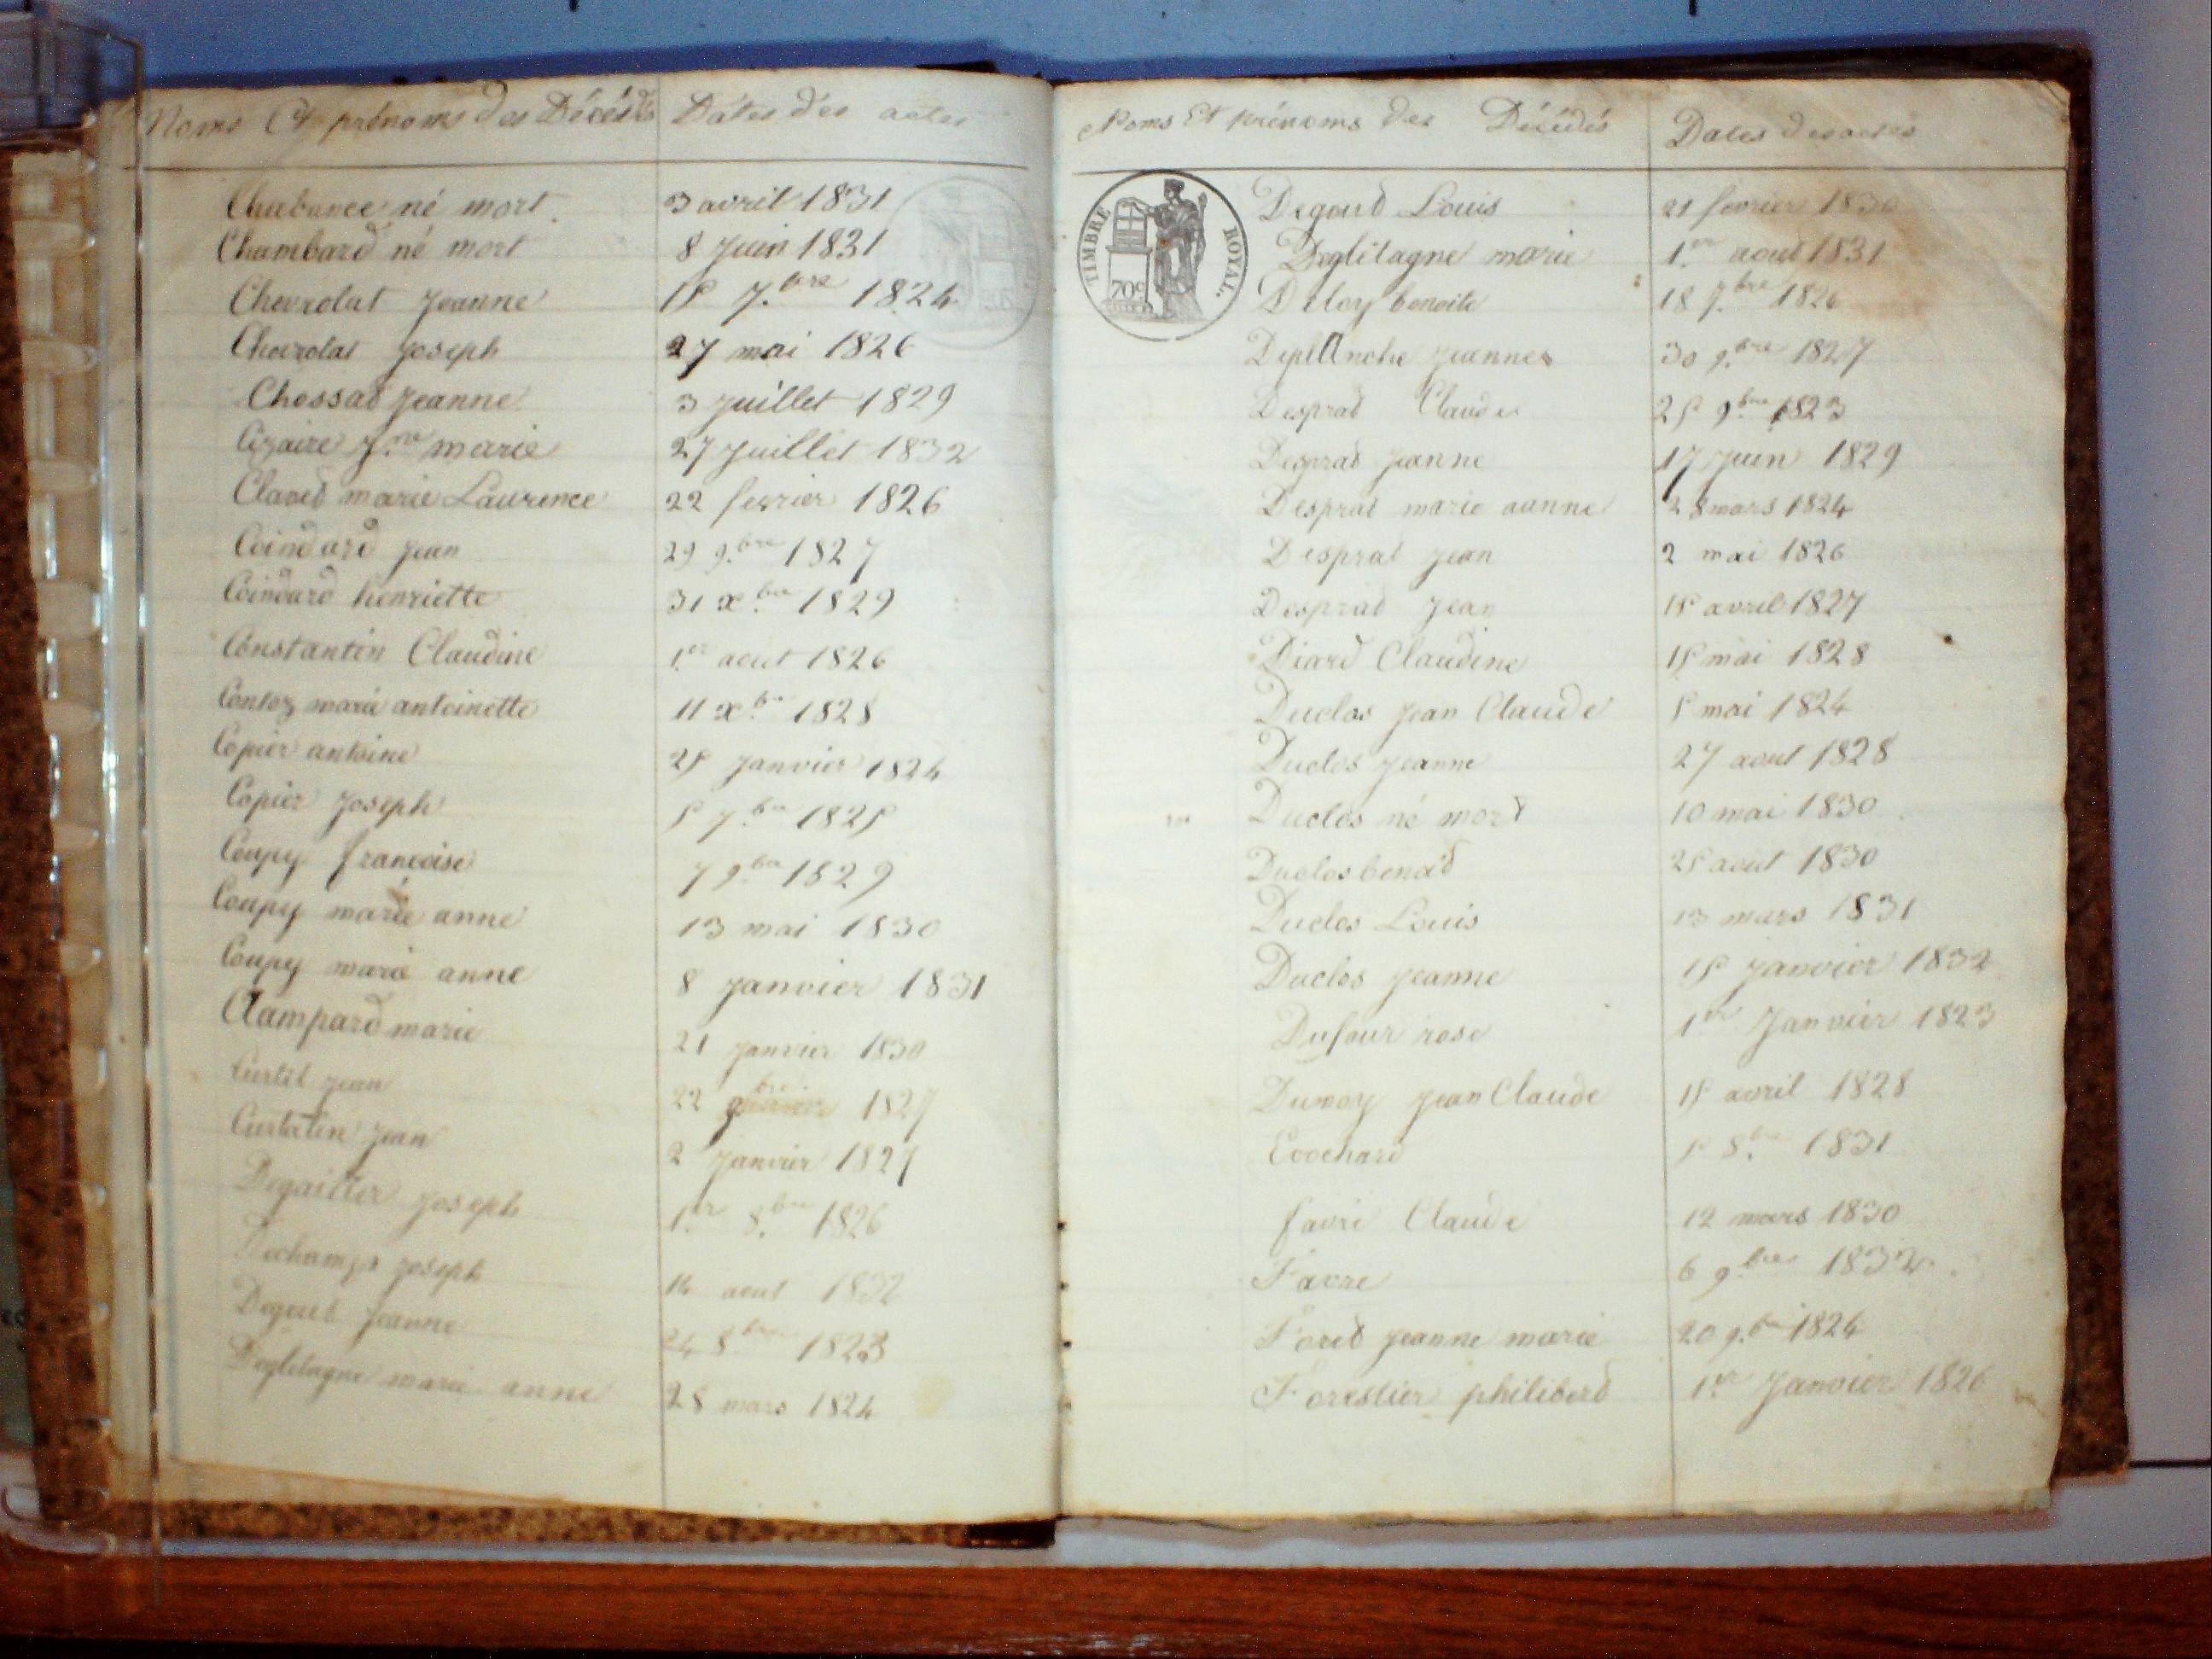 Noms Et prénoms des Décédés Dates des actes
Chabance né mort 3 avril 1831
Chambard né mort 8 Juin 1831
Chevrolat Jeanne 15 7.bre 1824
Chevrolat Joseph 27 mai 1826
Chossat Jeanne 3 Juillet 1829
marie 27 Juillet 1832
Claved marie Laurence 22 fevrier 1826
Coindard Jean 29 9.bre 1827
Coindard henriette 31 x.bre 1829
Constantin Claudine 1.er aout 1826
marie antoinette 11 x.bre 1828
Copier antoine 25 Janvier 1824
Copier Joseph 5 7.bre 1825
Coupy francoise 7 9.bre 1829
Coupy marie anne 13 mai 1830
Coupy marie anne 8 Janvier 1831
Clampard marie 21 Janvier 1830
Curtil Jean 22 9bre 1827
Curtatin Jean 2 Janvier 1827
Joseph 1.er 8.bre 1826
Dechamps Joseph 14 aout 1832
Degoud Jeanne 24 8bre 1823
Degletagne marie anne 28 mars 1824
Noms Et prénoms des Décédés Dates des actes
TIMBRE ROYAL.
Degoud Louis 21 fevrier 1830
Degletagne marie 1.er aout 1831
Deloy benoite 18 7.bre 1826
DeplAnche Jeanne 30 9.bre 1827
Desprad Claude 25 9.bre 1823
Desprad Jeanne 17 Juin 1829
Desprat marie aanne 28 mars 1824
Desprat Jean 2 mai 1826
Desprad Jean 15 avril 1827
Diard Claudine 15 mai 1828
Duclos Jean Claude 5 mai 1824
Duclos Jeanne 27 aout 1828
Duclos né mort 10 mai 1830
Duclos 25 aout 1830
Duclos Louis 13 mars 1831
Duclos Jeanne 15 Janvier 1832
Dufour rose 1er Janvier 1823
Dumay Jean Claude 15 avril 1828
Cochard 5 8.bre 1831
favre Claude 12 mars 1830
Favre 6 9.bre 1832
Fored Jeanne marie 20 9.bre 1824
Forestier philiberd 1.er Janvier 1826